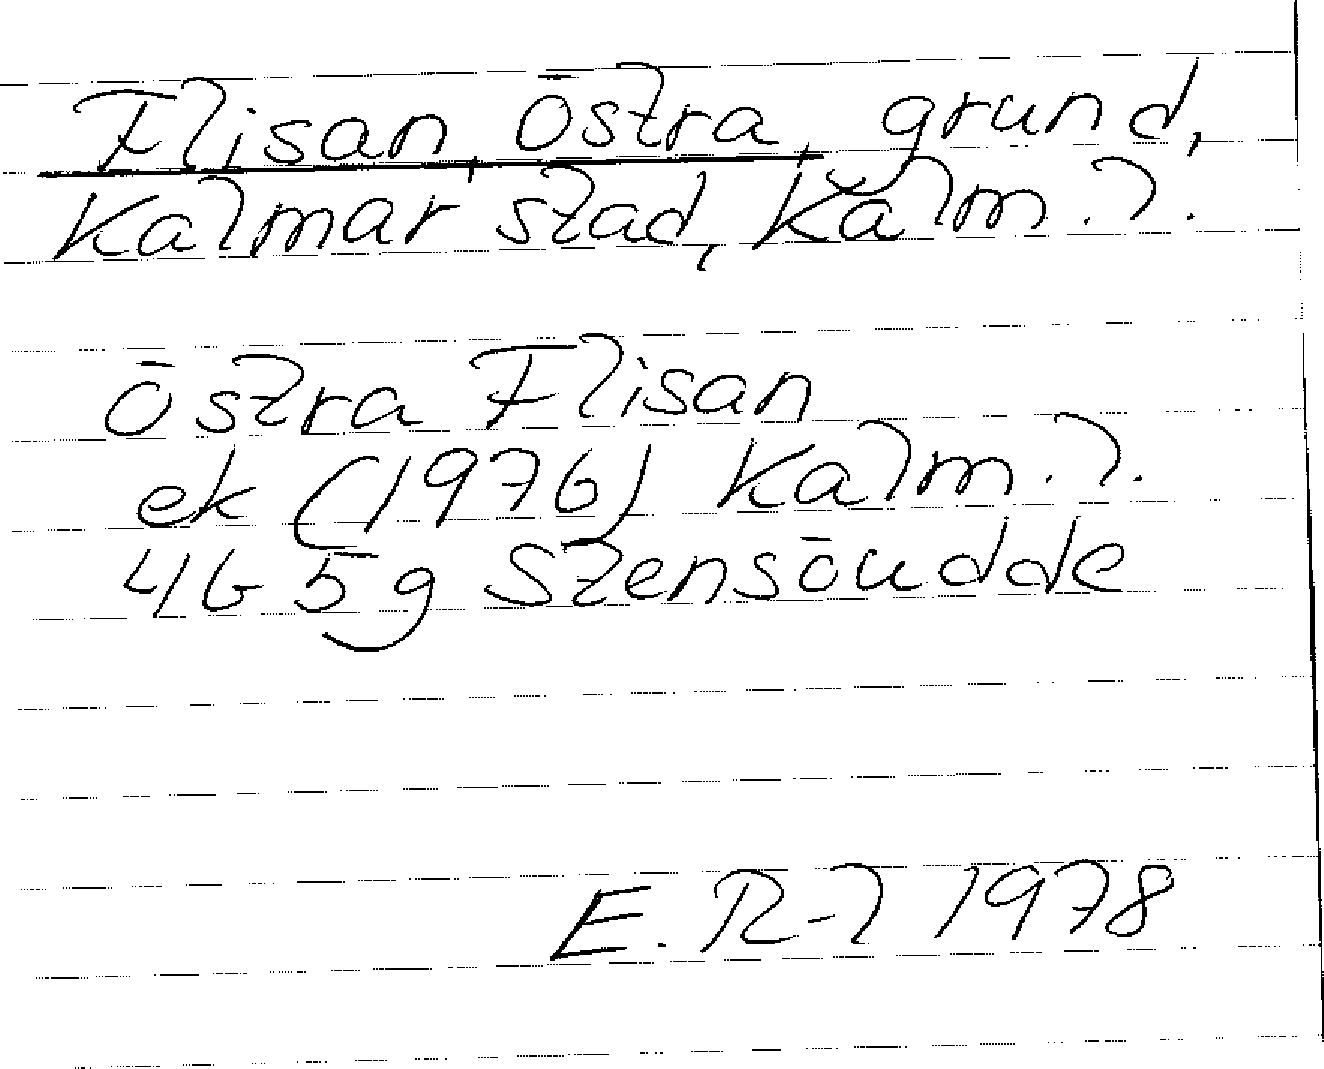 Flisan, Östra, grund,
Kalmar stad, Kalm. l.
Östra Flisan
ek (1976) Kalm. l.
4G 5g Stensöudde
E. R-l 1978